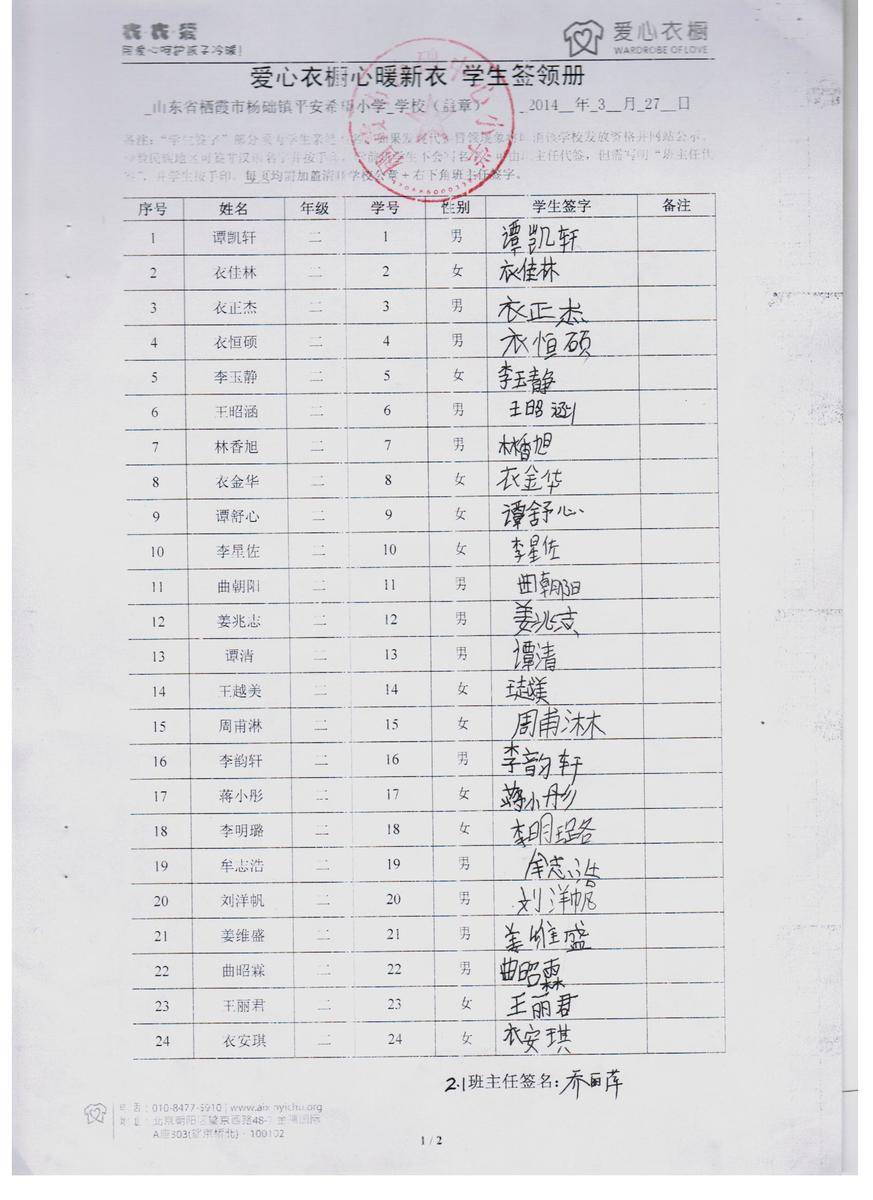 用爱心呵护孩子冷暖!
爱心衣橱
WARDROBE OF LOVE
爱心衣橱心暖新衣 学生签领册
_山东省栖霞市杨础镇平安希望小学_学校（盖章） _2014__年_3__月_27__日
备注：“学生签字”部分
班主任代签，但需写明“班主任代
学生按手印。每页均需加盖清晰学校公章+右下角班主任签字。
序号 姓名 年级 学号 性别 学生签字 备注
1 谭凯轩 二 1 男 谭凯轩
2 衣佳林 二 2 女 衣佳林
3 衣正杰 二 3 男 衣正杰
4 衣恒硕 二 4 男 衣恒硕
5 李玉静 二 5 女 李玉静
6 王昭涵 二 6 男 王昭涵
7 林香旭 二 7 男 林香旭
8 衣金华 二 8 女 衣金华
9 谭舒心 二 9 女 谭舒心
10 李星佐 二 10 女 李星佐
11 曲朝阳 二 11 男 曲朝阳
12 姜兆志 二 12 男 姜兆志
13 谭清 二 13 男 谭清
14 王越美 二 14 女 王越美
15 周甫淋 二 15 女 周甫淋
16 李韵轩 二 16 男 李韵轩
17 蒋小彤 二 17 女 蒋小彤
18 李明璐 二 18 女 李明璐
19 牟志浩 二 19 男 牟志浩
20 刘洋帆 二 20 男 刘洋帆
21 姜维盛 二 21 男 姜维盛
22 曲昭霖 二 22 男 曲昭霖
23 王丽君 二 23 女 王丽君
24 衣安琪 二 24 女 衣安琪
2.1班主任签名：乔丽萍
电话：010-8477-5910 | www.aixinyichu.org
地址：北京朝阳区望京西路48-
A座303(望京桥北)·100102
1 / 2